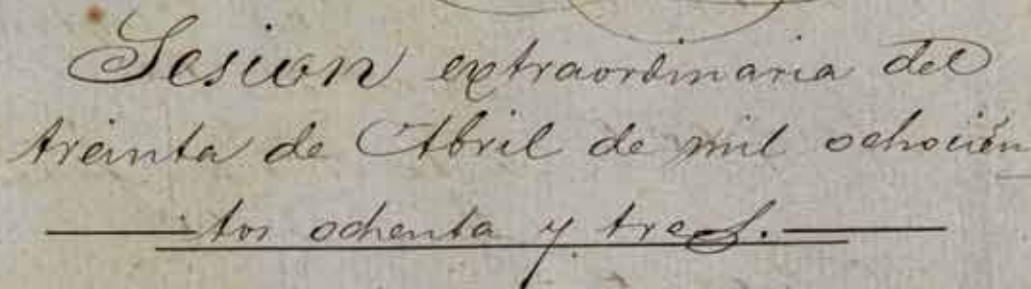 Sesion extraordinaria del
treinta de Abril de mil ochocien
tos ochenta y tres.